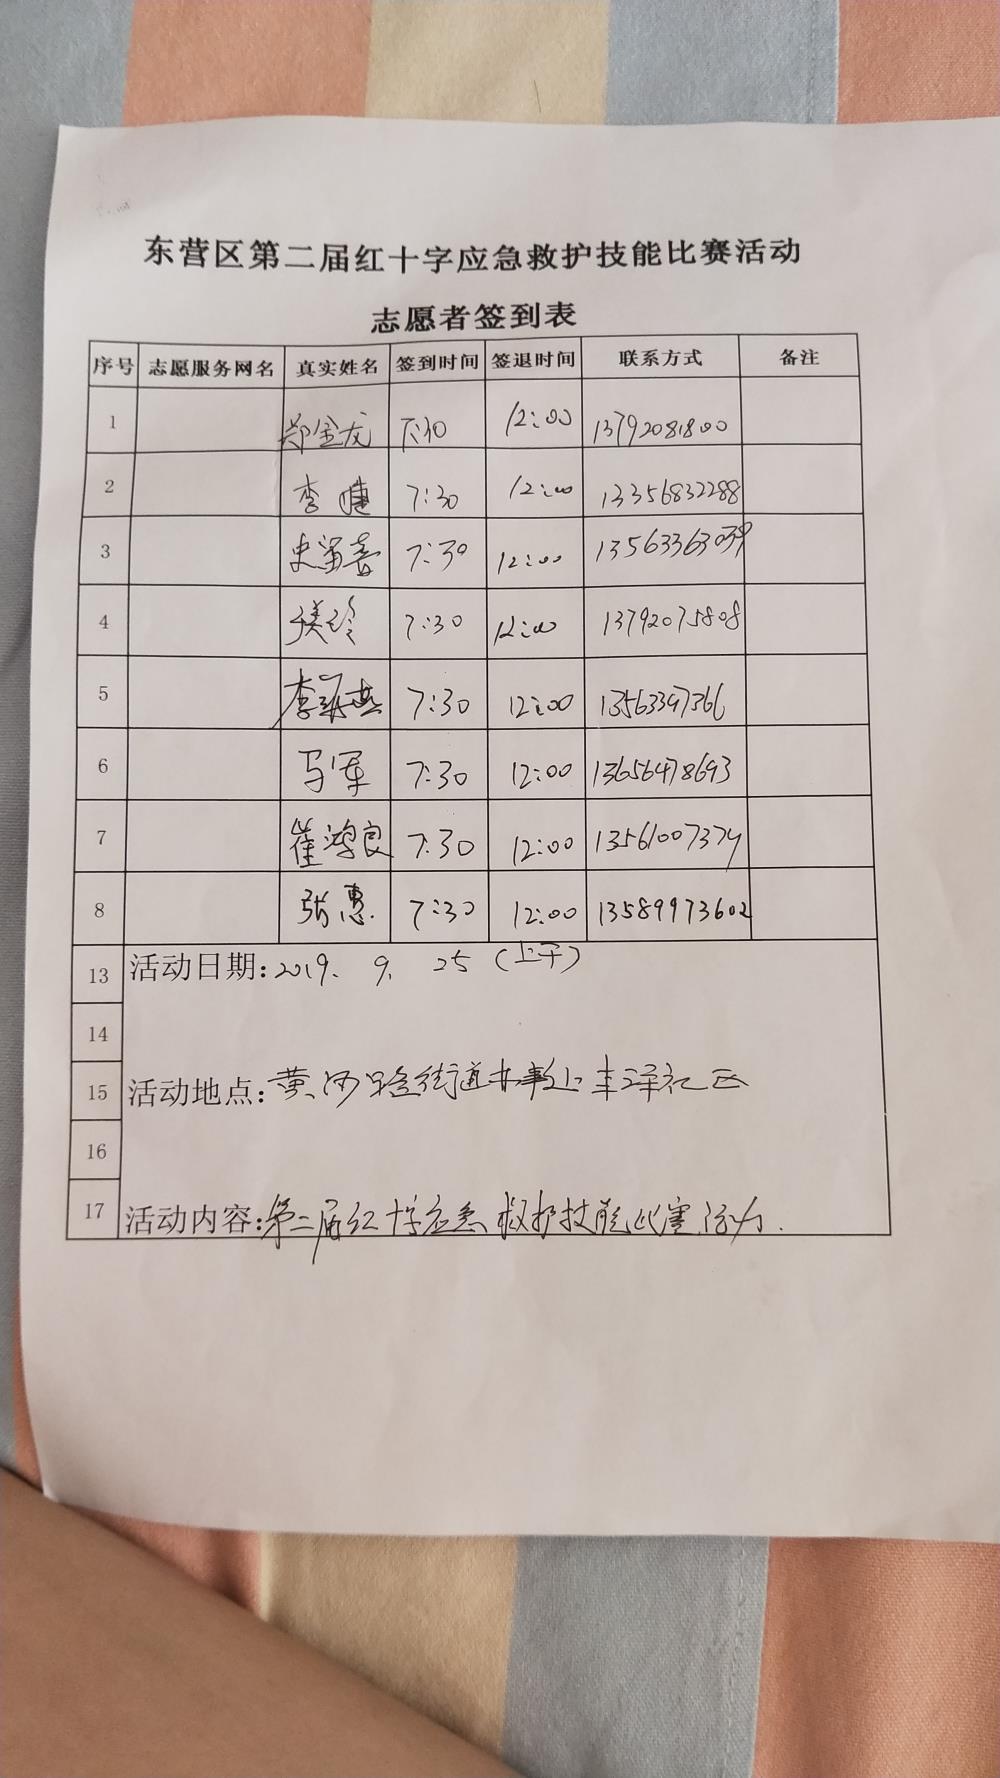 东营区第二届红十字应急救护技能比赛活动
志愿者签到表
序号 志愿服务网名 真实姓名 签到时间 签退时间 联系方式 备注
1 郑金龙 12:00 13792081800
2 李 7:30 12:00 13356832288
3 史 7:30 12:00 13563363039
4 7:30 12:00 13792075808
5 李 7:30 12:00 13563397366
6 马军 7:30 12:00 13656478693
7 崔鸿良 7:30 12:00 13561007374
8 张惠 7:30 12:00 13589973602
13 活动日期:2019. 9. 25(上午)
14
15 活动地点:黄河路街道办事处丰泽社区
16
17 活动内容:第二届红十字应急救护技能比赛活动.